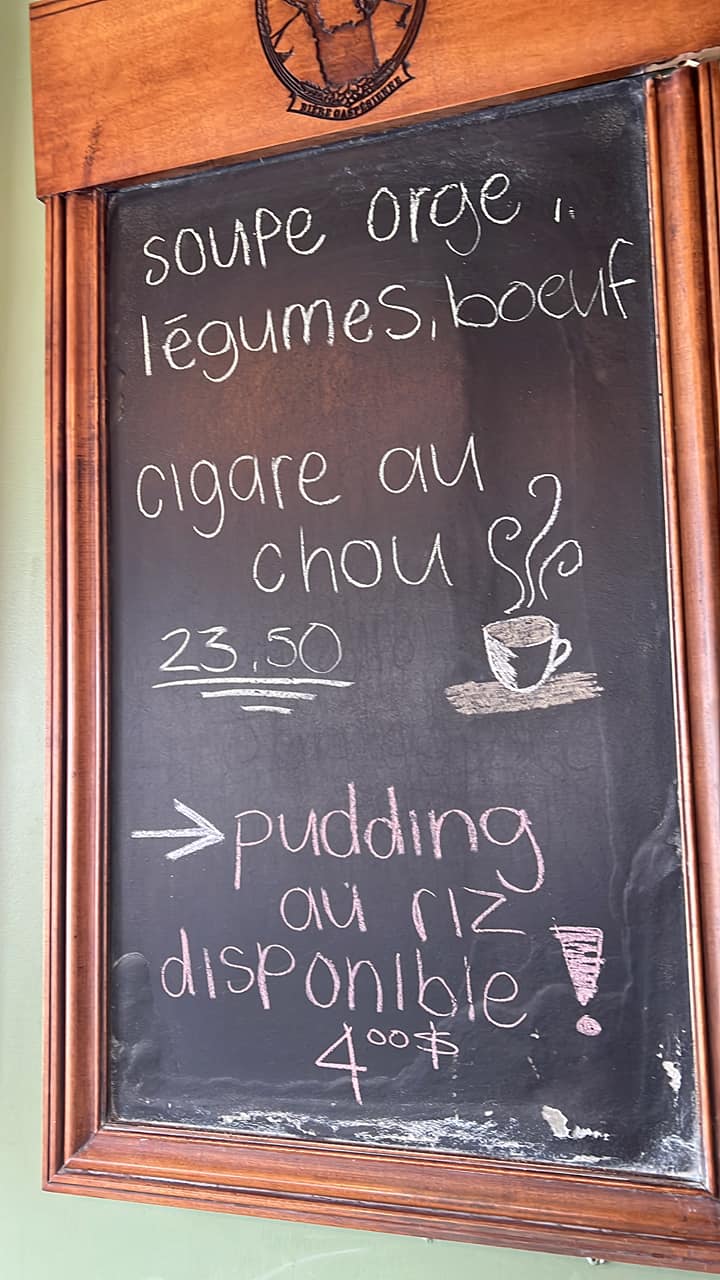 BIÈRE GASPÉSIENNE
soupe orge,
légumes, boeuf
cigare au
chou
23.50
→ pudding
au riz
disponible !
4⁰⁰$